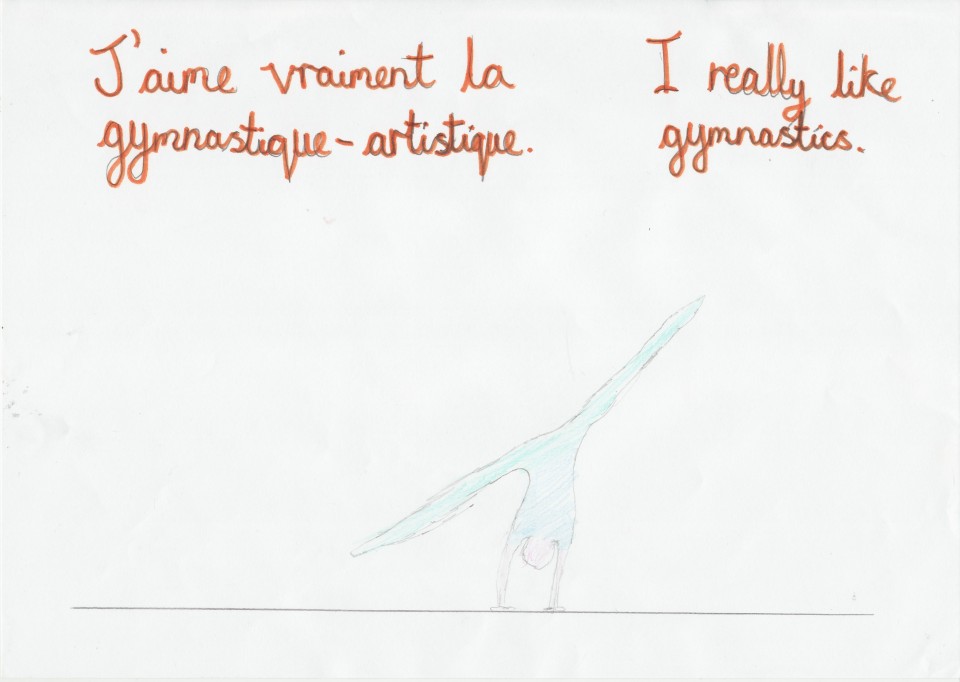 J'aime vraiment la
gymnastique-artistique.
I really like
gymnastics.